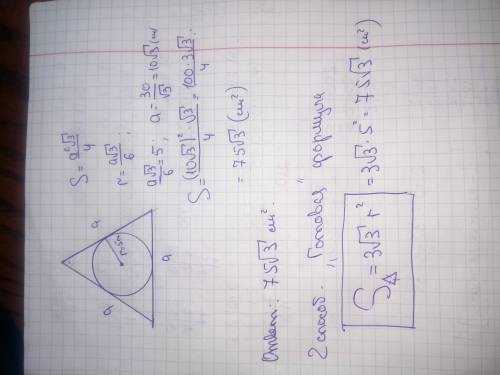 a
a
r=5см
a
S = a²√3/4
r = a√3/6 ;
a√3/6 = 5 ; a = 30/√3 = 10√3 (см)
S = (10√3)²·√3/4 = 100·3√3/4 =
= 75√3 (см²)
Ответ: 75√3 см².
2 способ. "Готовая" формула
S△ = 3√3 r² = 3√3·5² = 75√3 (см²)